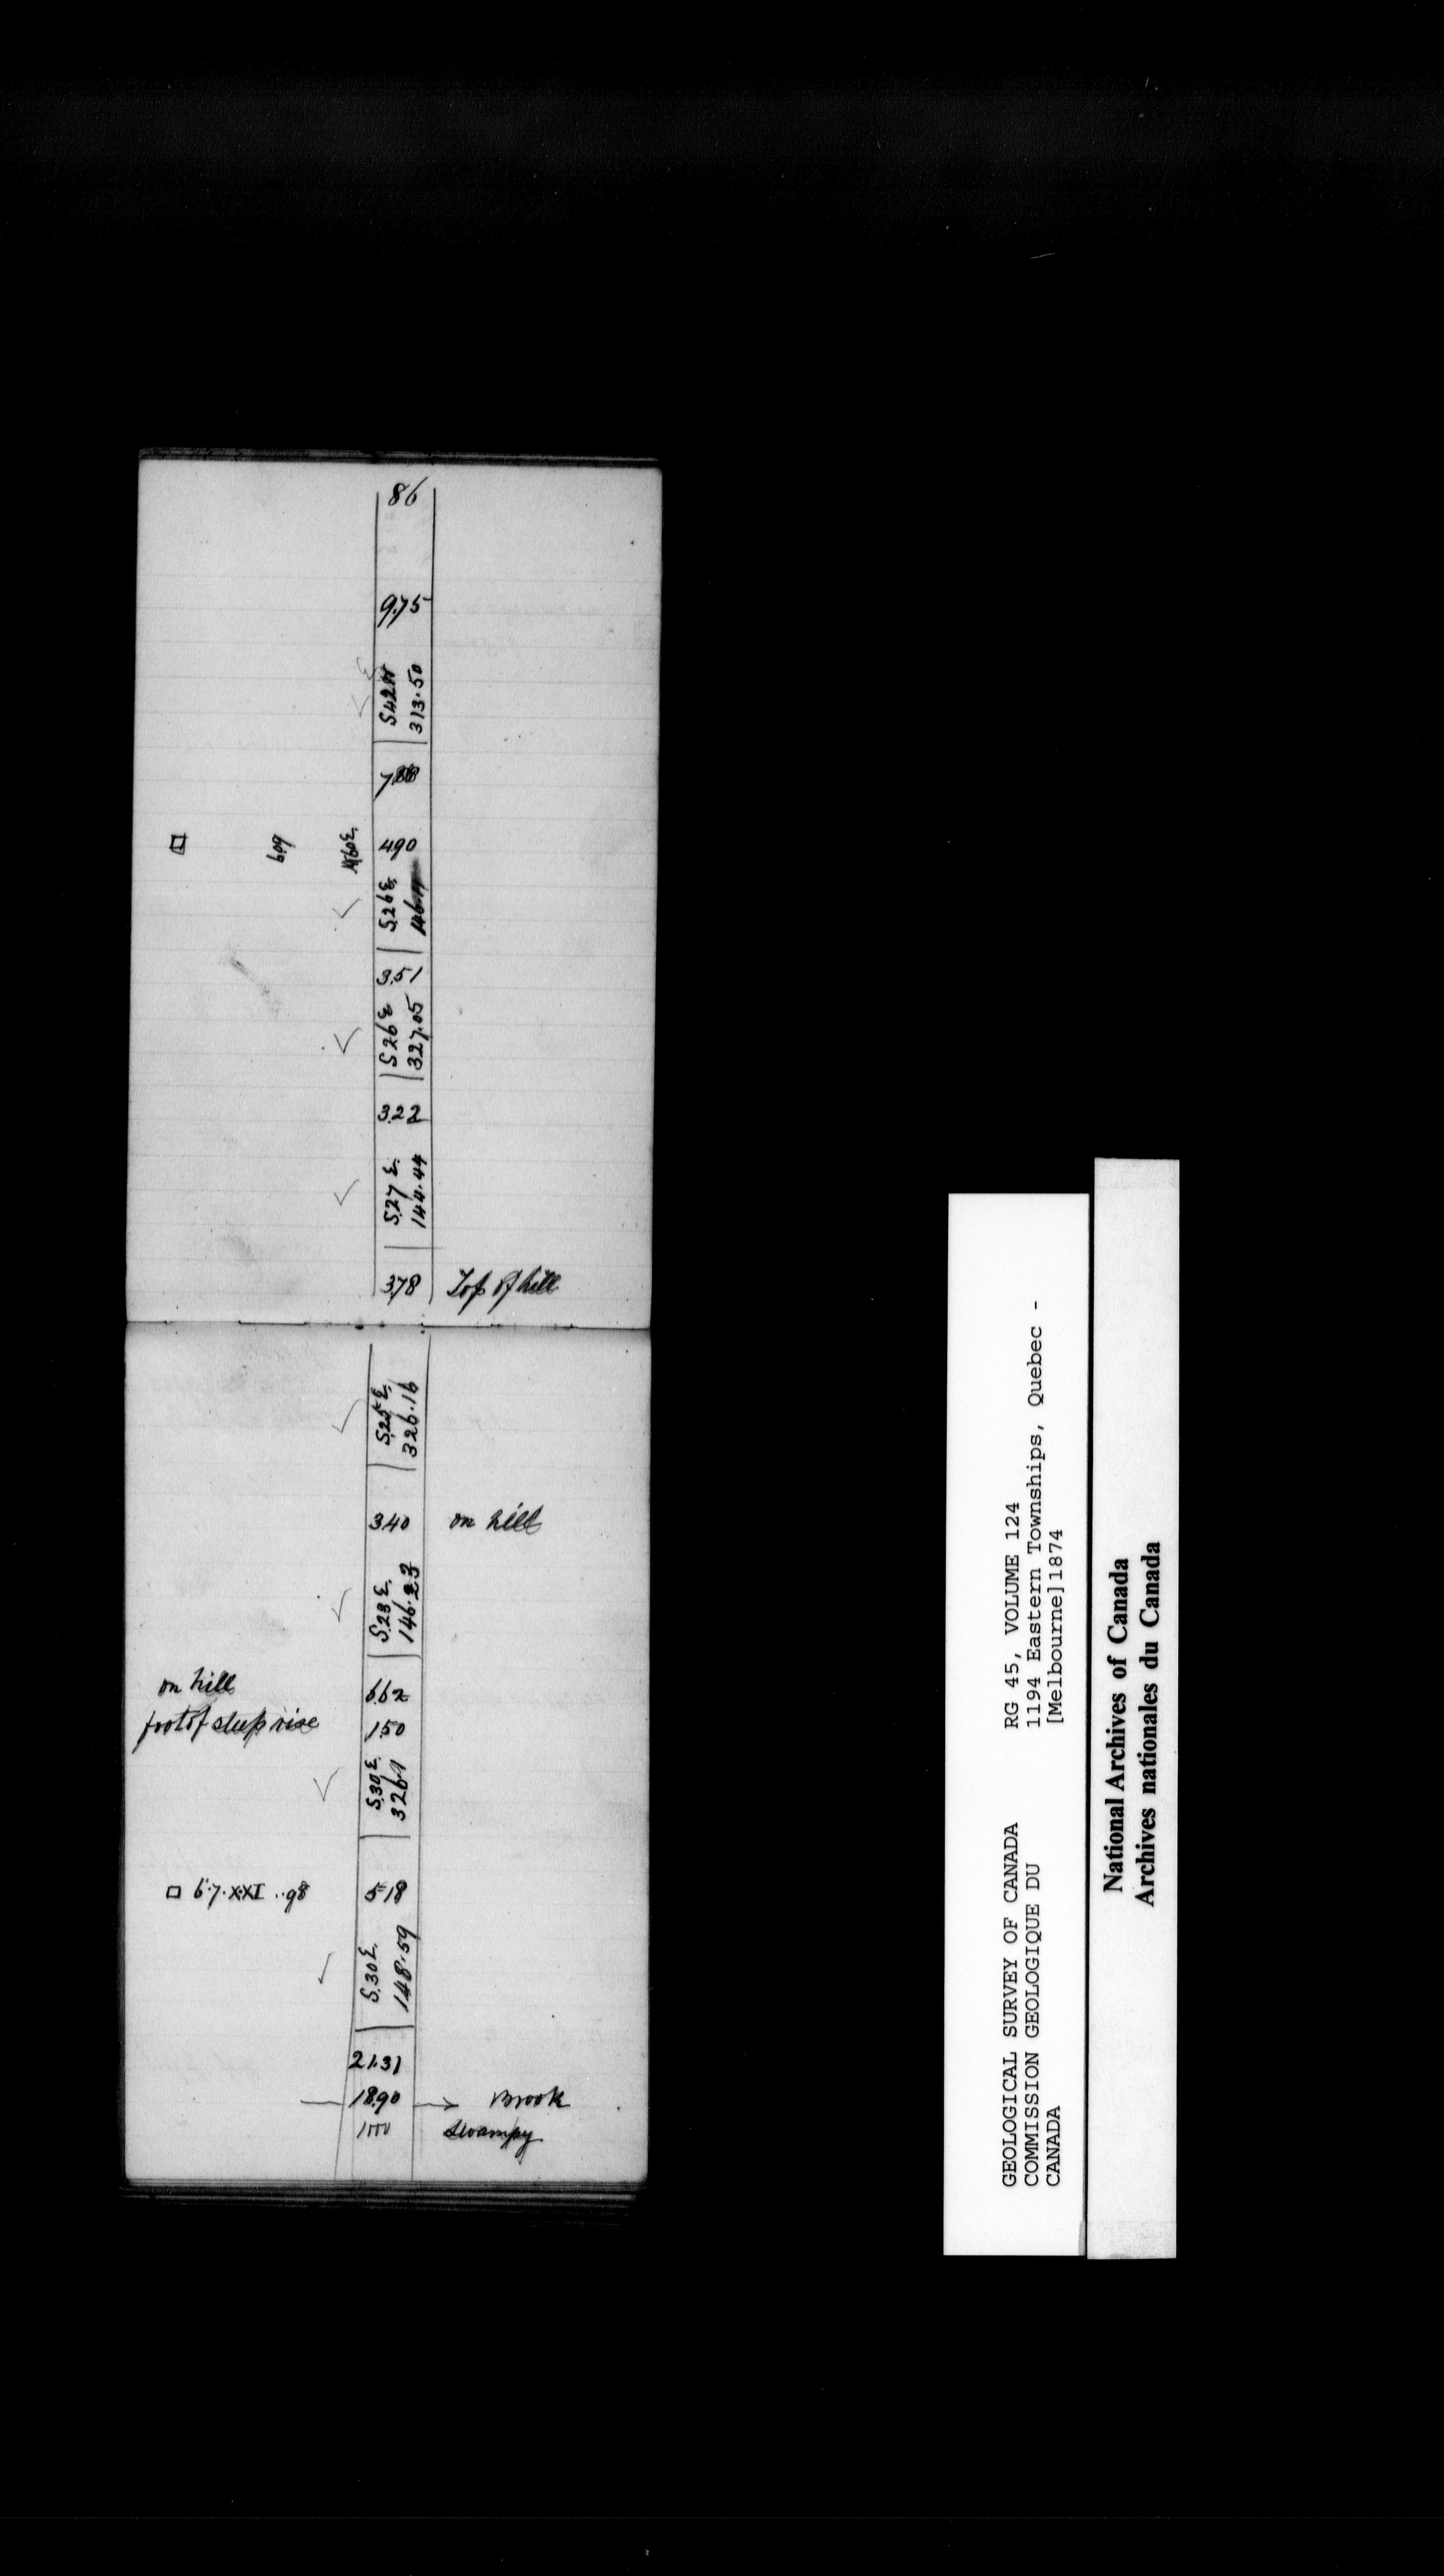 86
9.75
S42W E
313.50
7.88
□ 609 N60E. 490
S.26E.
3.51
S26E
327.05
3.22
S.27E.
144.44
3.78 Top of hill
S.25E.
326.16
3.40 on hill
S.23E.
146.23
on hill 6.62
foot of steep rise 1.50
S.30E.
3261
□ 6.7.XXI..98 5.18
S.30E.
148.59
21.31
18.90 Brook
1000 Swampy
GEOLOGICAL SURVEY OF CANADA RG 45, VOLUME 124
COMMISSION GEOLOGIQUE DU 1194 Eastern Townships, Quebec -
CANADA [Melbourne]1874
National Archives of Canada
Archives nationales du Canada